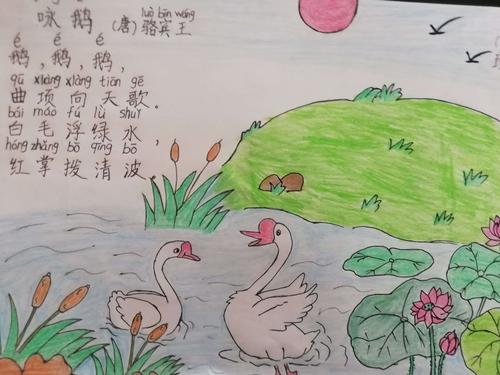 咏鹅 (唐) luò bīn wáng 骆宾王
é é é
鹅,鹅,鹅,
qū xiàng xiàng tiān gē
曲项向天歌。
bái máo fú lǜ shuǐ
白毛浮绿水,
hóng zhǎng bō qīng bō
红掌拨清波。